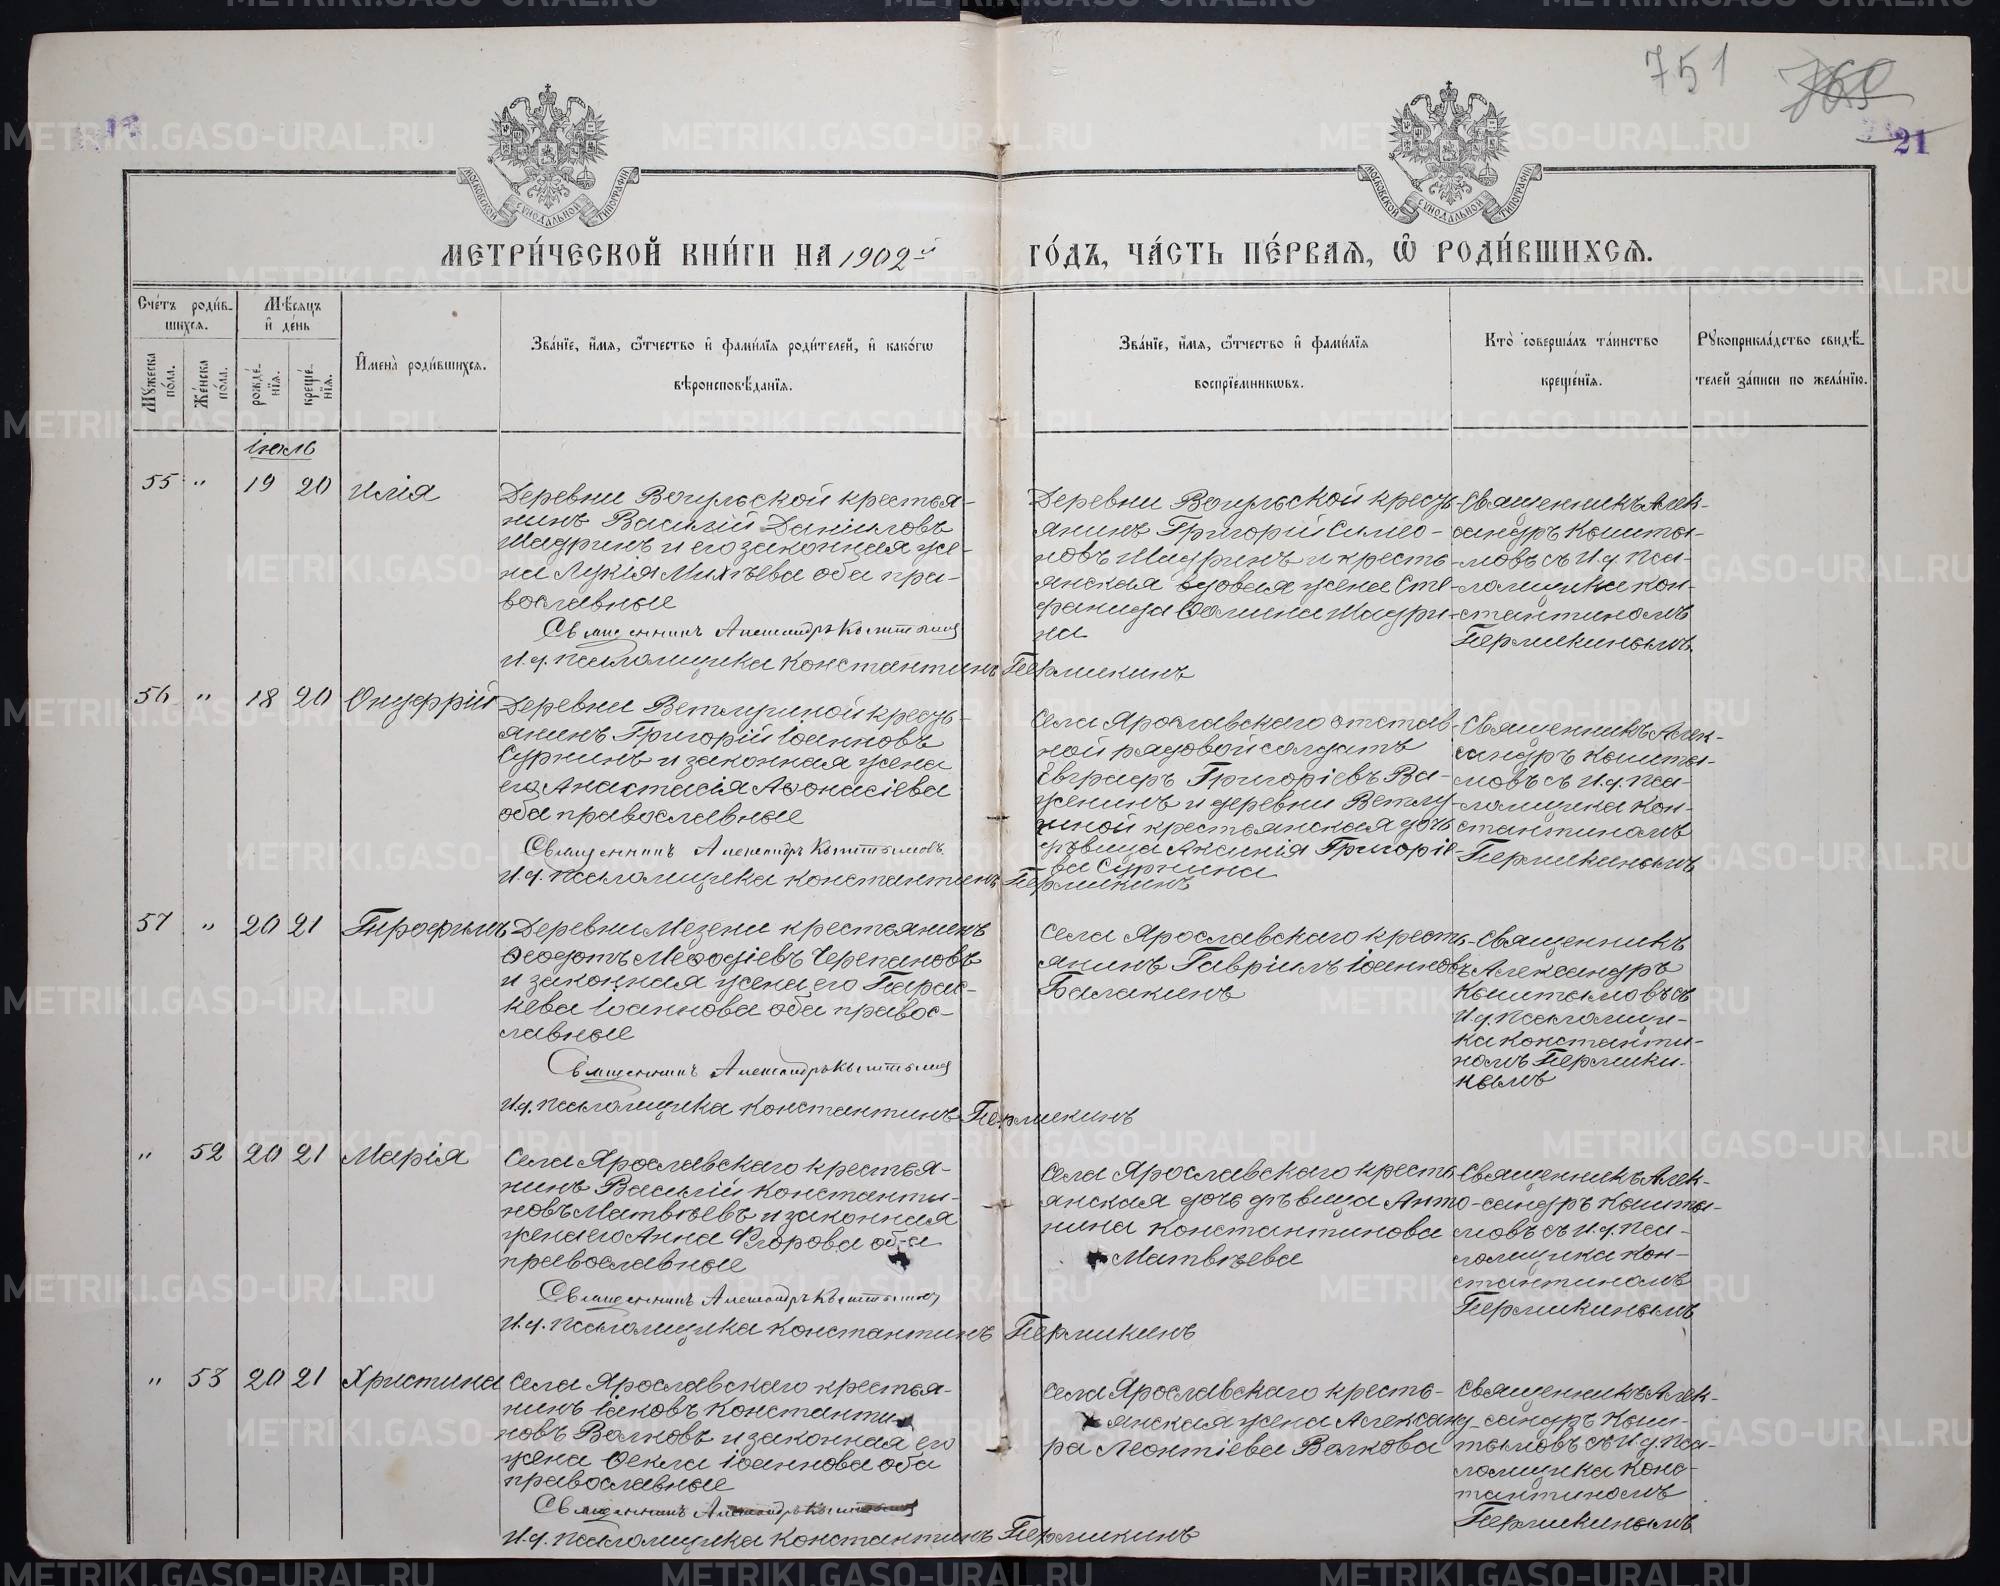 751
21
МОСКОВСКОЙ СѴНОДАЛЬНОЙ ТИПОГРАФІИ
МОСКОВСКОЙ СѴНОДАЛЬНОЙ ТИПОГРАФІИ
МЕТРИ́ЧЕСКОЙ КНИ́ГИ НА 1902й
ГО́ДЪ, ЧА́СТЬ ПЕ́РВАЯ, Ѡ РОДИ́ВШИХСЯ.
Сче́тъ роди́в-
шихся.
Мꙋжеска по́ла.
Же́нска по́ла.
Мѣ́сяцъ и҆ де́нь
рожде́нїя.
креще́нїя.
И҆мена̀ роди́вшихся.
Зва́нїе, и҆́мя, ѻ҆́тчество и҆ фами́лїя роди́телей, и҆ како́гѡ
вѣроисповѣ́данїя.
Зва́нїе, и҆́мя, ѻ҆́тчество и҆ фами́лїя
воспрїе́мникѡвъ.
Кто̀ соверша́лъ та́инство
креще́нїя.
Рꙋкоприкла́дство свидѣ́-
телей за́писи по жела́нїю.
Іюль
55 " 19 20 Илія
Деревни Вогульской крестья-
нинъ Василій Даніиловъ
Шадринъ и его законная же-
на Лукія Михѣева оба пра-
вославные
Священникъ Александръ Кыштымов
И.д. псаломщика Константинъ Пермикинъ
Деревни Вогульской крест-
янинъ Григорій Симео-
новъ Шадринъ и кресть-
янская вдовая жена Сте-
фанида Фомина Шадри-
на
Священникъ Алек-
сандръ Кышты-
мовъ съ И.д. пса-
ломщика Кон-
стантиномъ
Пермикинымъ.
56 " 18 20 Онуфрій
Деревни Ветлугиной крест-
янинъ Григорій Іоанновъ
Суринъ и законная жена
его Анастасія Аѳонасіева
оба православные
Священникъ Александръ Кыштымовъ
И.д. псаломщика Константинъ Пермикинъ
Села Ярославскаго отстав-
ной рядовой солдатъ
Евграфъ Григоріевъ Ва-
женинъ и деревни Ветлу-
гиной крестьянская дочь
дѣвица Аксинія Григоріе-
ва Сурнина
Священникъ Алек-
сандръ Кышты-
мовъ съ И.д. пса-
ломщика Кон-
стантиномъ
Пермикинымъ
57 " 20 21
Деревни Мезени крестьянинъ
Ѳеодотъ Меѳодіевъ Черепановъ
и законная жена его Парас-
кева Іоаннова оба правос-
лавные
Священникъ Александръ Кыштымов
И.д. псаломщика Константинъ Пермикинъ
Села Ярославскаго кресть-
янинъ Гавріилъ Іоанновъ
Балакинъ
Священникъ
Александръ
Кыштымовъ съ
И.д. псаломщи-
ка Константи-
номъ Пермики-
нымъ
" 52 20 21 Марія
Села Ярославскаго крестья-
нинъ Василій Константи-
новъ Матвѣевъ и законная
жена его Анна Егорова оба
православные
Священникъ Александръ Кыштымов
И.д. псаломщика Константинъ Пермикинъ
Села Ярославскаго кресть-
янская дочь дѣвица Анто-
нина Константинова
Матвѣева
Священникъ Алек-
сандръ Кышты-
мовъ съ И.д. пса-
ломщика Кон-
стантиномъ
Пермикинымъ
" 53 20 21 Христина
Села Ярославскаго крестья-
нинъ Іаковъ Константи-
новъ Волковъ и законная его
жена Ѳекла Іоаннова оба
православные
Священникъ Александръ Кыштымов
И.д. псаломщика Константинъ Пермикинъ
Села Ярославскаго кресть-
янская жена Александ-
ра Леонтіева Волкова
Священникъ Алек-
сандръ Кыш-
тымовъ съ И.д. пса-
ломщика Конс-
тантиномъ
Пермикинымъ
METRIKI.GASO-URAL.RU